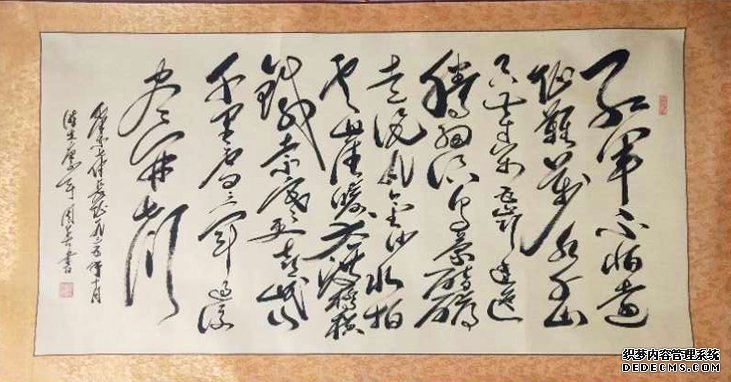 红军不怕远
征難萬水千山
只等闲五岭逶迤
腾细浪乌蒙磅礴
走泥丸金沙水拍
云崖暖大渡桥横
铁索寒更喜岷山
千里雪三军过后
尽开颜
长征一九三五年十月
书
织梦内容管理系统
DEDECMS.COM